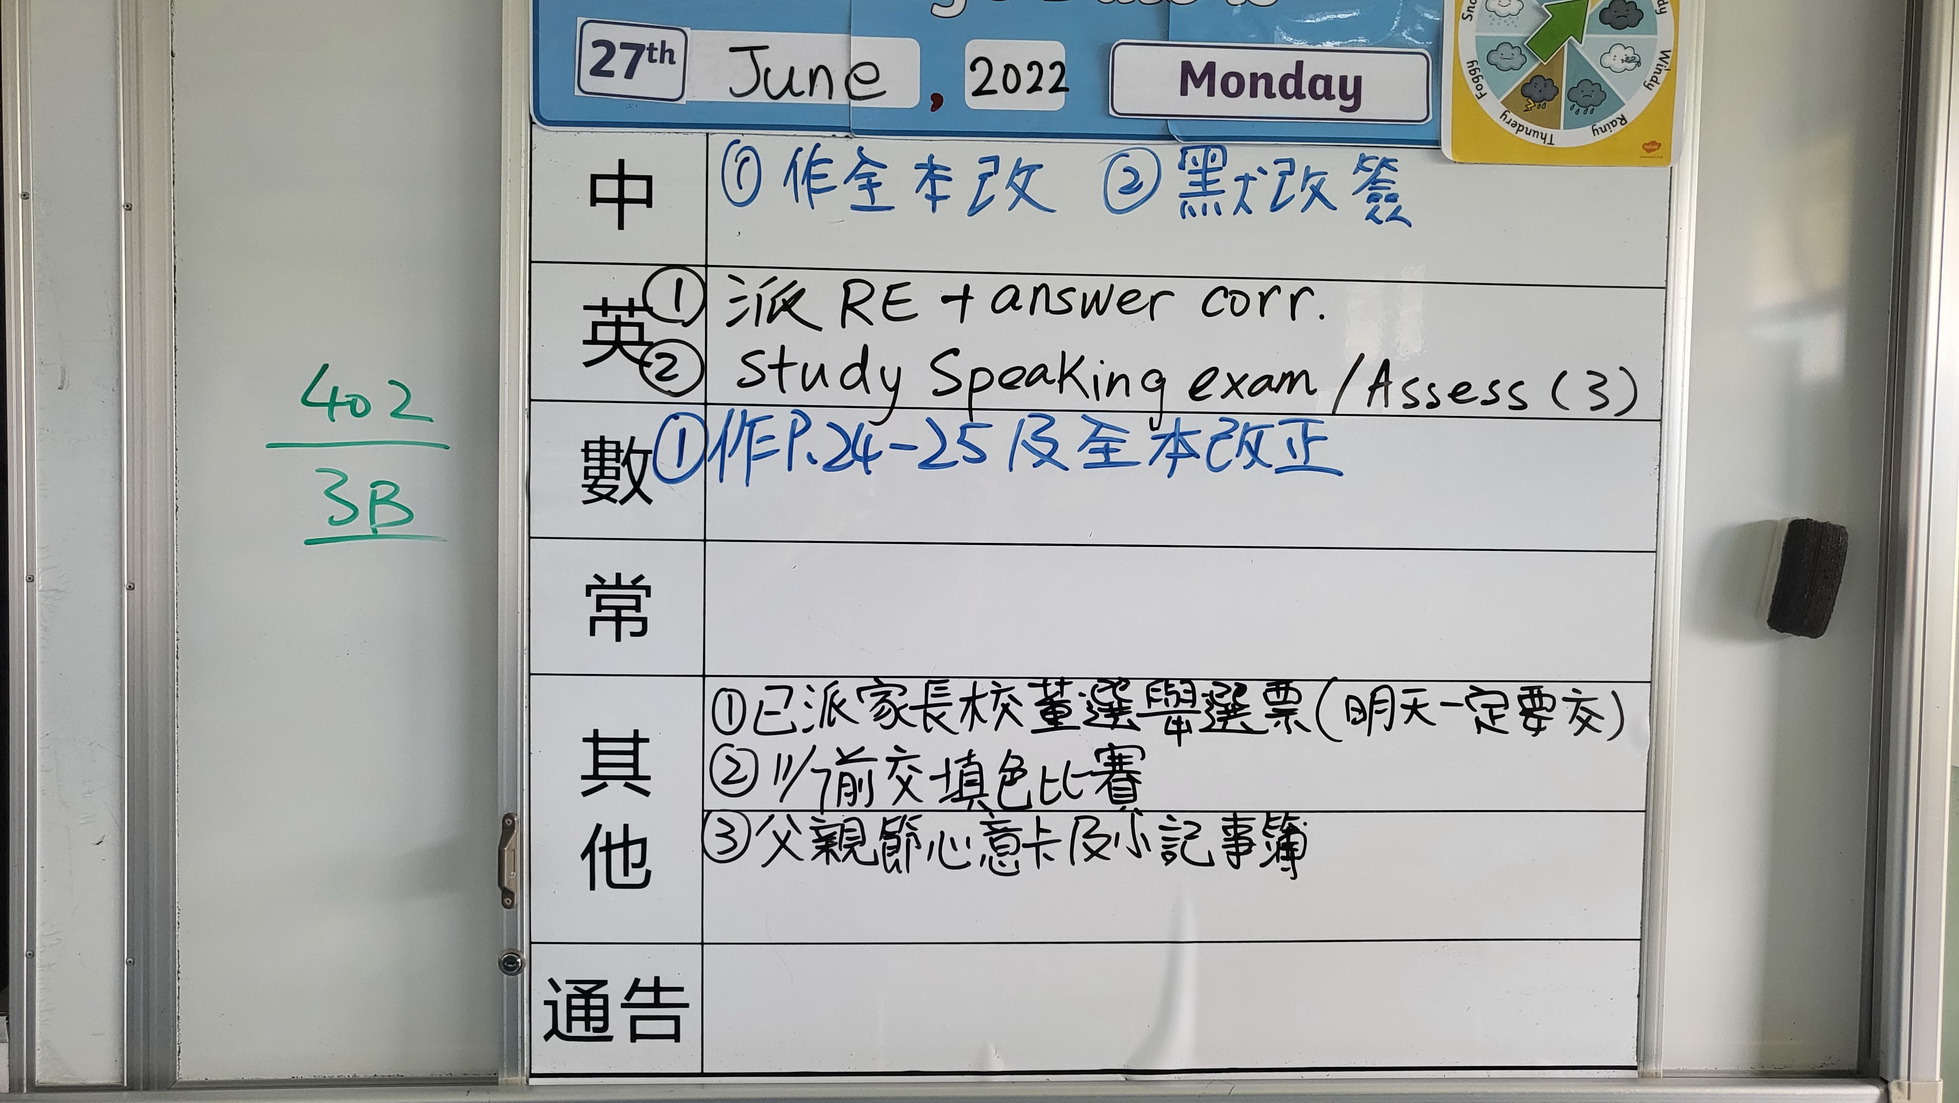 27th June, 2022 Monday
Foggy
Thundery
Rainy
Windy
中 ① 作全本改 ② 默改簽
英 ① 派 RE + answer corr.
② Study Speaking exam / Assess (3)
數 ① 作P.24-25 及全本改正
常
其他 ① 已派家長校董選舉選票(明天一定要交)
② 11/7前交填色比賽
③ 父親節心意卡及小記事簿
通告
402
3B